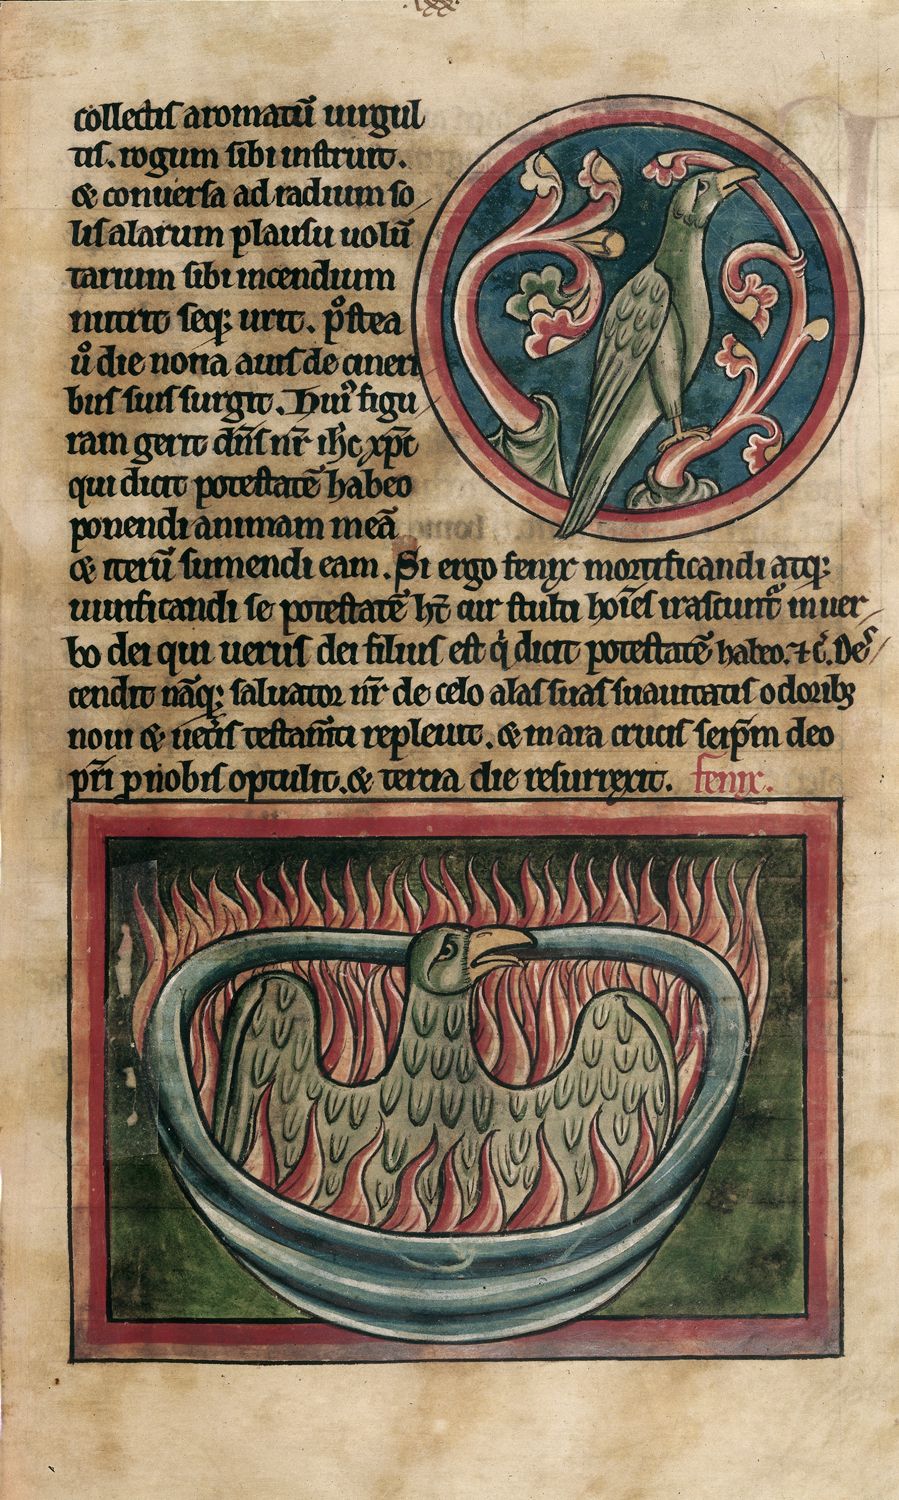 collectis aromatũ uirgul
tis. rogum sibi instruit.
& conuersa ad radium so
lis alarum plausu uolũ
tarium sibi incendium
nutrit seq; urit. p᷒ostea
ůo die nona auis de cineri
bus suis surgit. Hui᷒ figu
ram gerit dñs nr̄ ihc̄ xp̄c
qui dicit potestatē habeo
ponendi animam meā
& iterũ sumendi eam. Si ergo fenix mortificandi atq;
uiuificandi se potestatē ht̄ cur stulti hoīes irascunt᷑ in uer
bo dei qui uerus dei filius est qͥ dicit potestatē habeo. ⁊ c̃. Des
cendit nāq; saluator nr̄ de celo alas suas suauitatis odorib;
noui & uet̃is testam̄ti repleuit. & in ara crucis seip̄m deo
pr̄i p nobis optulit. & tercia die resurrexit. fenix.